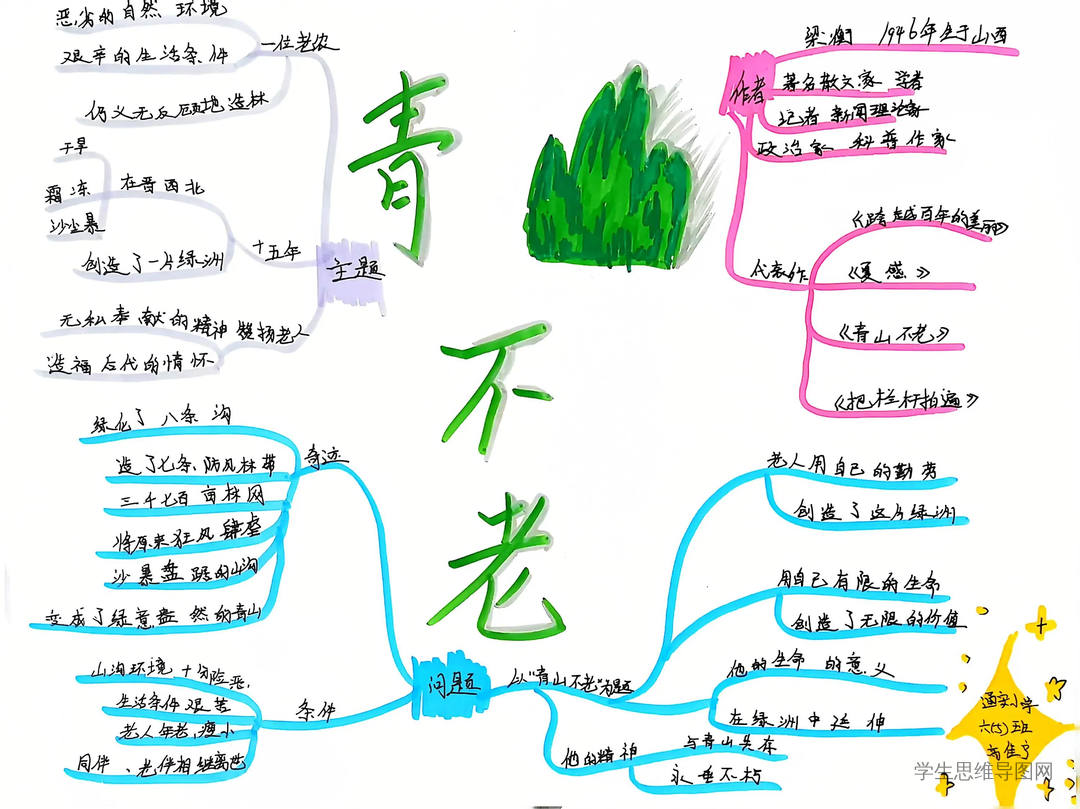 青
不
老
恶劣的自然环境
艰辛的生活条件
一位老农
仍义无反顾地造林
干旱
霜冻
沙尘暴
在晋西北
创造了一片绿洲
十五年
主题
无私奉献的精神
赞扬老人
造福后代的情怀
作者
梁衡 1946年生于山西
著名散文家 学者
记者 新闻理论家
政治家 科普作家
代表作
《跨越百年的美丽》
《夏感》
《青山不老》
《把栏杆拍遍》
绿化了八条沟
奇迹
造了七条防风林带
三千七百亩林网
将原来狂风肆虐
沙暴盘踞的山沟
变成了绿意盎然的青山
山沟环境十分险恶,
生活条件艰苦
老人年老,瘦小
同伴、老伴相继离世
条件
问题
以"青山不老"为题
老人用自己的勤劳
创造了这片绿洲
用自己有限的生命
创造了无限的价值
他的生命的意义
在绿洲中延伸
他的精神
与青山共存
永垂不朽
通安小学
六(5)班
佳宁
学生思维导图网